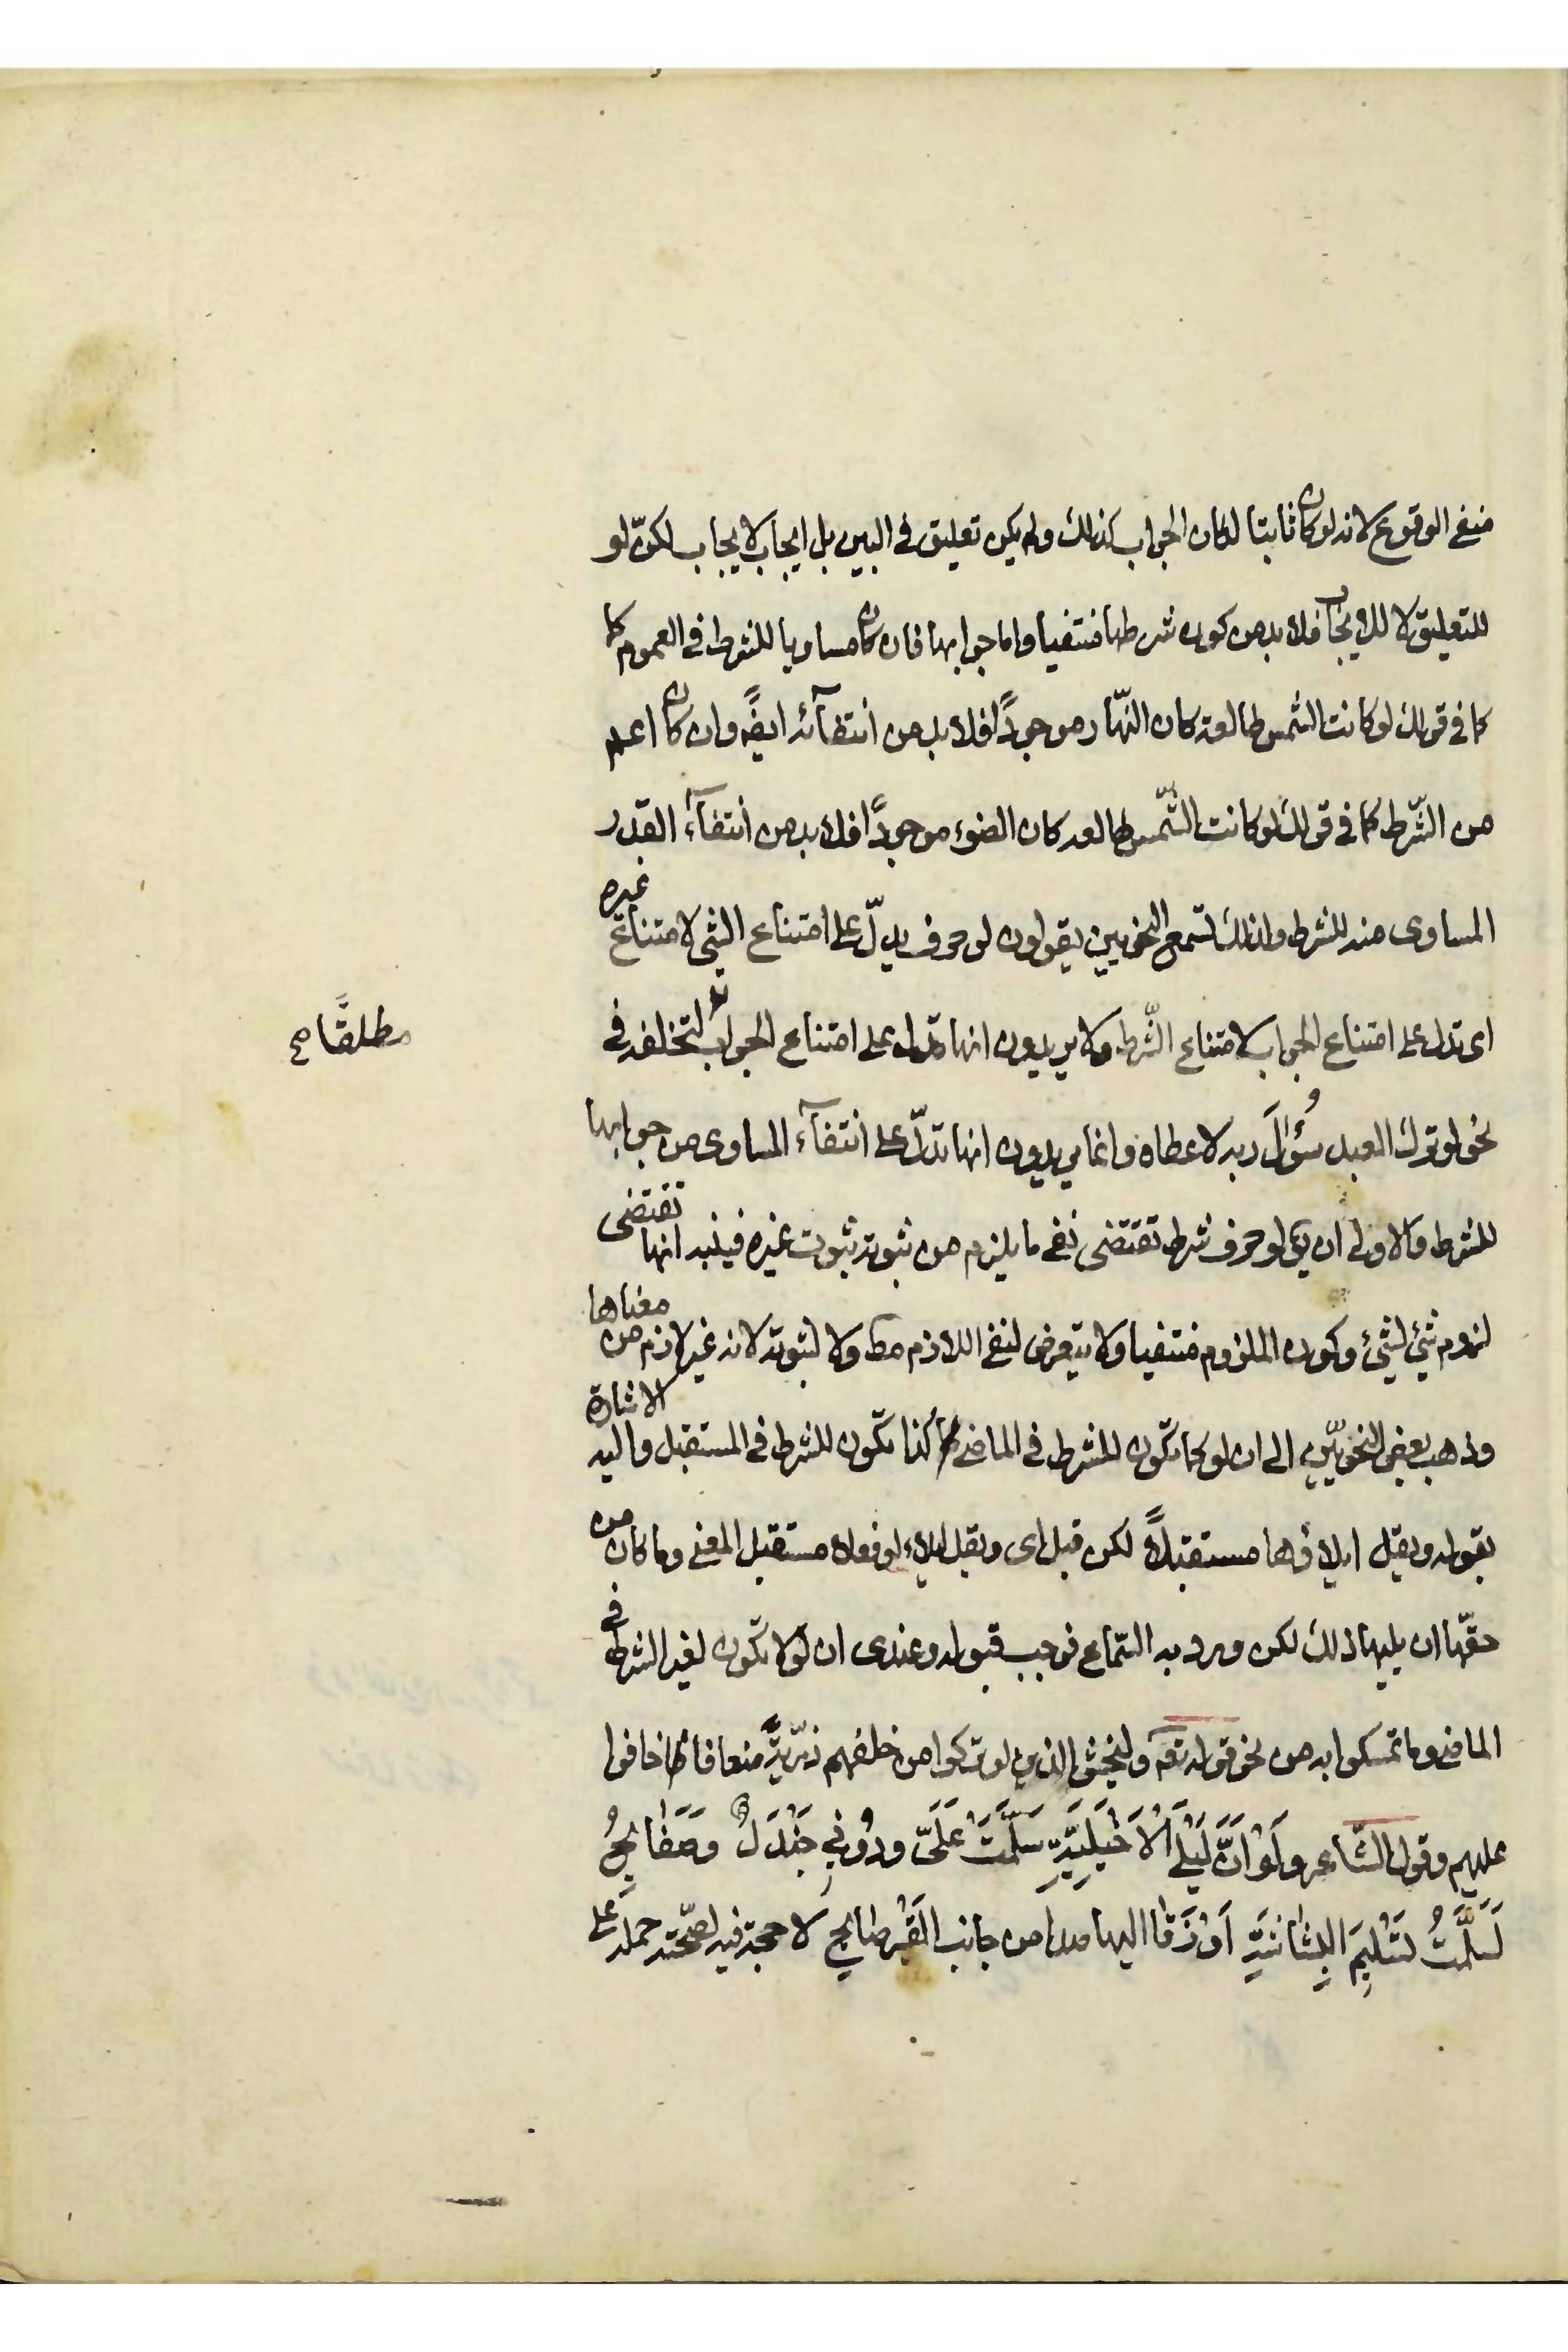 منفى الوقوع لانه لو كان ثابتا لكان الجواب كذلك ولم يكن تعليق فى البين بل ايجاب لايجاب لكنّ لو
للتعليق لا للايجاب فلا بد من كون شرطها منتفيا واما جوابها فان كان مساويا للشرط فى العموم كما
كما فى قولك لو كانت الشمس طالعة كان النّهار موجودًا فلا بد من انتفآئه ايضًا وان كان اعم
من الشّرط كما فى قولك لو كانت الشّمس طالعه كان الضوء موجودًا فلا بد من انتفآء القدر
المساوى منه للشرط ولذلك تسمع النحويين يقولون لو حرف يدلّ على امتناع الشئ لامتناع غيره
اى تدل على امتناع الجواب لامتناع الشّرط ولا يريدون انها تدل على امتناع الجواب لتخلفه فى
مطلقًا صح
نحو لو ترك العبد سُؤالَ ربه لاعطاه وانما يريدون انها تدلّ على انتفآء المساوى من جوابها
للشرط والاولى ان يق لو حرف شرط تقتضى نفى ما يلزم من ثبوته ثبوت غيره فينبه انها تقتضى
لزوم شئ لشئ وكون الملزوم منتفيا ولا يتعرض لنفى اللازم مط ولا لثبوته لانه غير لازم من معناها
وذهب بعض النحويّين الى ان لو كما تكون للشرط فى الماضى كذا تكون للشرط فى المستقبل واليه الاشارة
بقوله ويقل ايلاؤها مستقبلًا لكن قبل اى ويقل ايلاء لو فعلا مستقبل المعنى وما كان من
حقّها ان يليها ذلك لكن ورد به السّماع فوجب قبوله وعندى ان لو لا تكون لغير الشرط فى
الماضى وما تمسكوا به من نحو قوله تعم وليخش الذين لو تركوا من خلفهم ذرّيةً ضعافا خافوا
عليهم وقول الشّاعر ولَوْ اَنَّ لَيْلَى الْاَخْيَلِيَّةِ سَلَّمَتْ عَلَىَّ ودُونِى جَنْدَلٌ وصَفٰايِحُ
لَسَلَّمْتُ تَسْلِيمَ الْبِشٰاشَةِ اَوْ زَقٰا اليها صدا من جانب القَبْرِ صٰايِح لا حجة فيه لصحّته حمله على